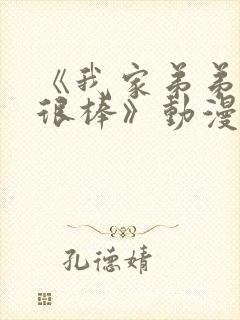 《我家弟弟
很棒》動漫
孔德婧